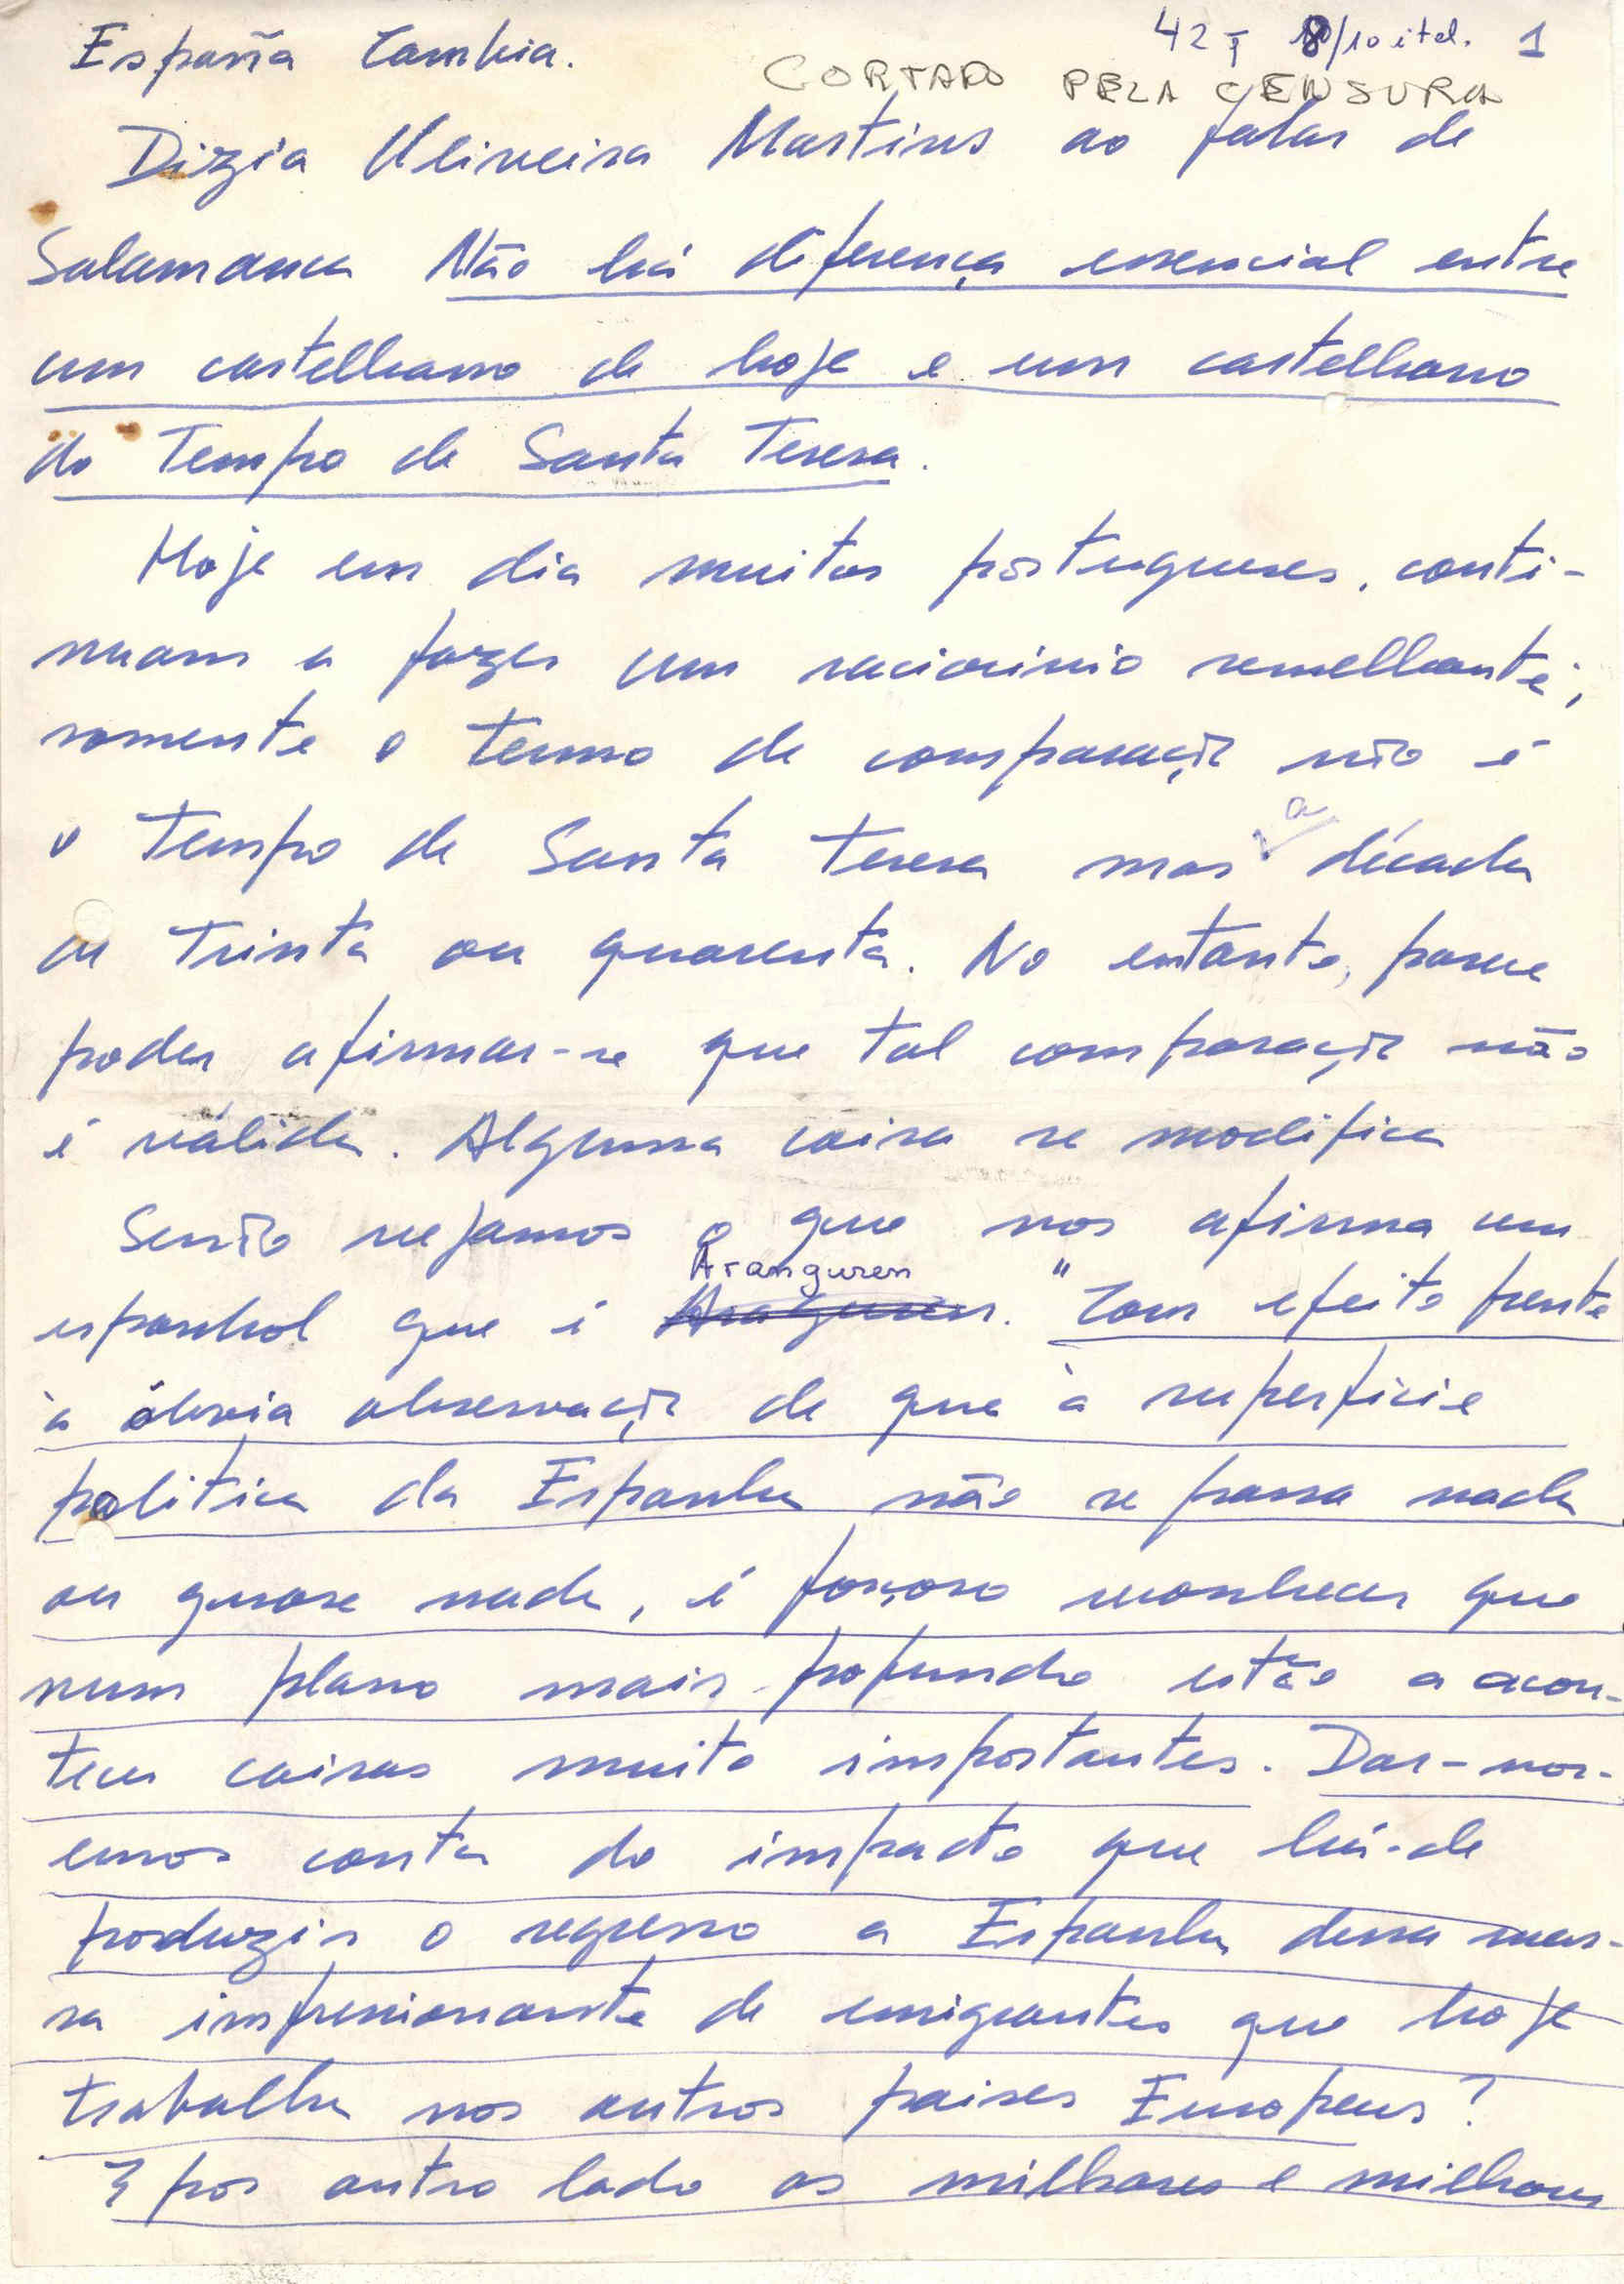 España Cambia.
42 8/10 itel. 1
CORTADO PELA CENSURA
Dizia Oliveira Martins ao falar de
Salamanca Não há diferença essencial entre
um castelhano de hoje e um castelhano
do tempo de Santa Teresa.
Hoje em dia muitos portugueses, conti-
nuam a fazer um raciocinio semelhante;
somente o termo de comparação não é
o tempo de Santa Teresa mas a década
de trinta ou quarenta. No entanto, parece
poder afirmar-se que tal comparação não
é válida. Alguma coisa se modifica
Senão vejamos o que nos afirma um
espanhol que é Aranguren. "Com efeito frente
à óbvia observação de que à superficie
politica da Espanha não se passa nada
ou quase nada, é forçoso reconhecer que
num plano mais profundo estão a acon-
tecer coisas muito importantes. Dar-nos-
emos conta do impacto que há-de
produzir o regresso a Espanha dessa mas-
sa impressionante de emigrantes que hoje
trabalha nos outros paises Europeus?
E por outro lado os milhares e milhares